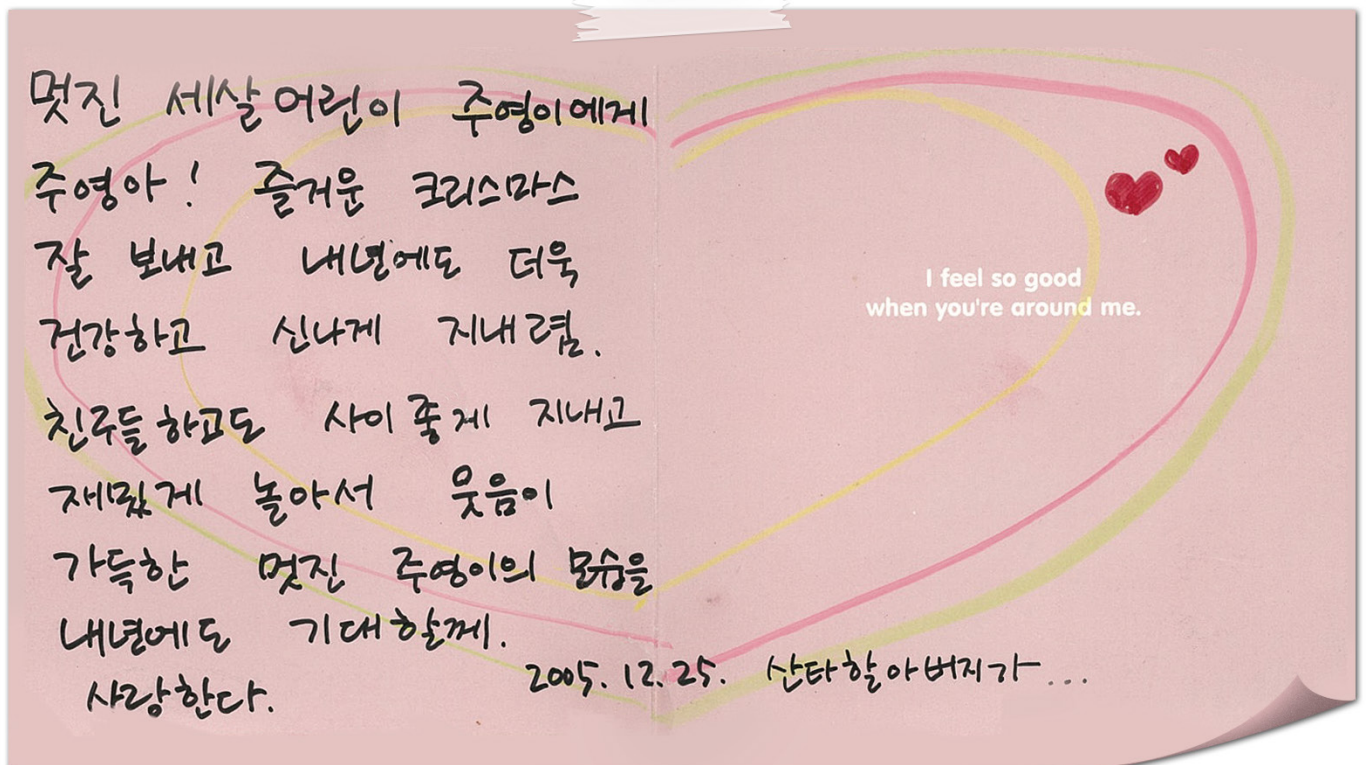 멋진 세살 어린이 주영이에게
주영아! 즐거운 크리스마스
잘 보내고 내년에도 더욱
건강하고 신나게 지내렴.
친구들하고도 사이좋게 지내고
재밌게 놀아서 웃음이
가득한 멋진 주영이의 모습을
내년에도 기대할께.
사랑한다.
2005. 12. 25. 산타할아버지가...
I feel so good
when you're around me.